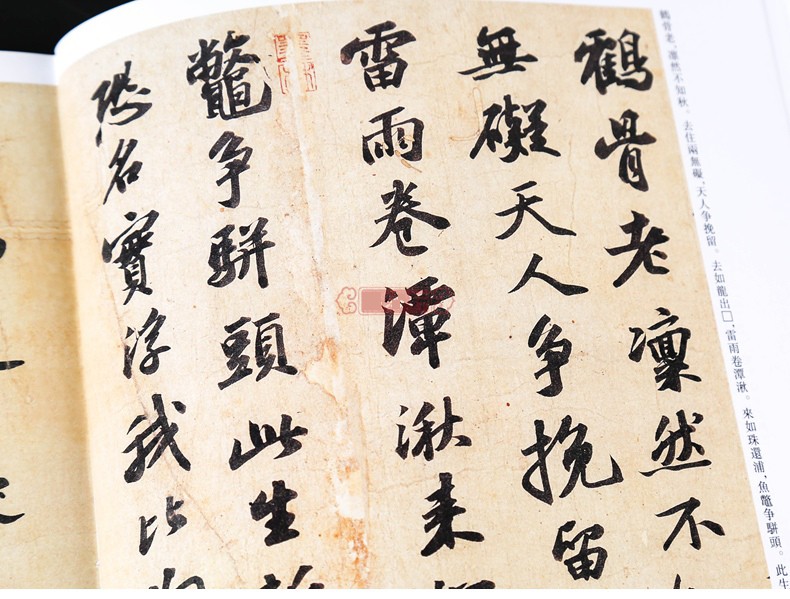 鶴骨老凛然不
無礙天人争挽留
雷雨卷潭湫来
鼈争駢頭此生
名實浮我比
鶴骨老，凛然不知秋。去住兩無礙，天人争挽留。去如龍出□，雷雨卷潭湫。來如珠還浦，魚鼈争駢頭。此生